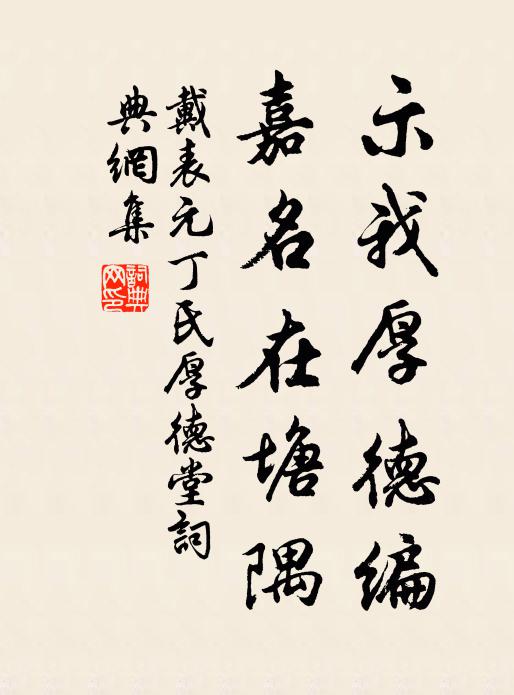 示我厚德编
嘉名在塘隅
戴表元丁氏厚德堂詞
典網集
詞典网印